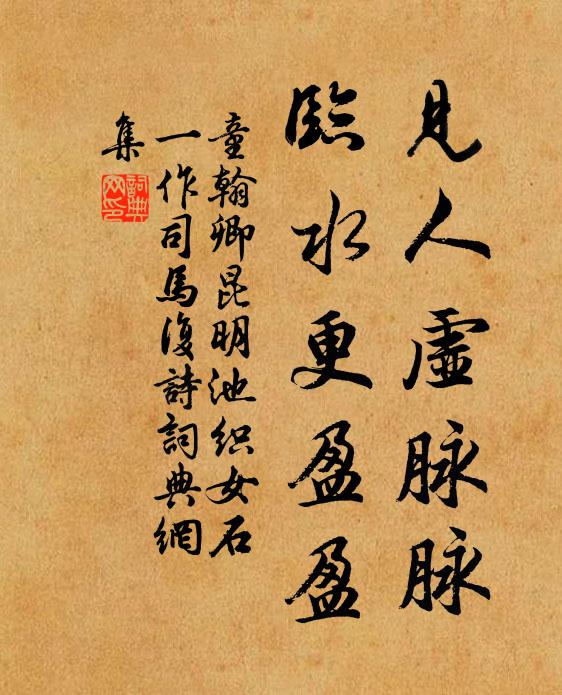 見人虛脉脉
臨水更盈盈
童翰卿昆明池织女石
一作司馬復詩詞典網
集
詞典网印